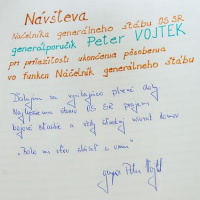 Návšteva
Náčelníka generálneho štábu OS SR
generálporučík Peter VOJTEK
pri príležitosti ukončenia pôsobenia
vo funkcii Náčelník generálneho štábu
Ďakujem za vynikajúco plnené úlohy
OS SR prajem
bojové šťastie a vždy šťastný návrat domov
"Bolo mi cťou slúžiť s vami"
Peter Vojtek